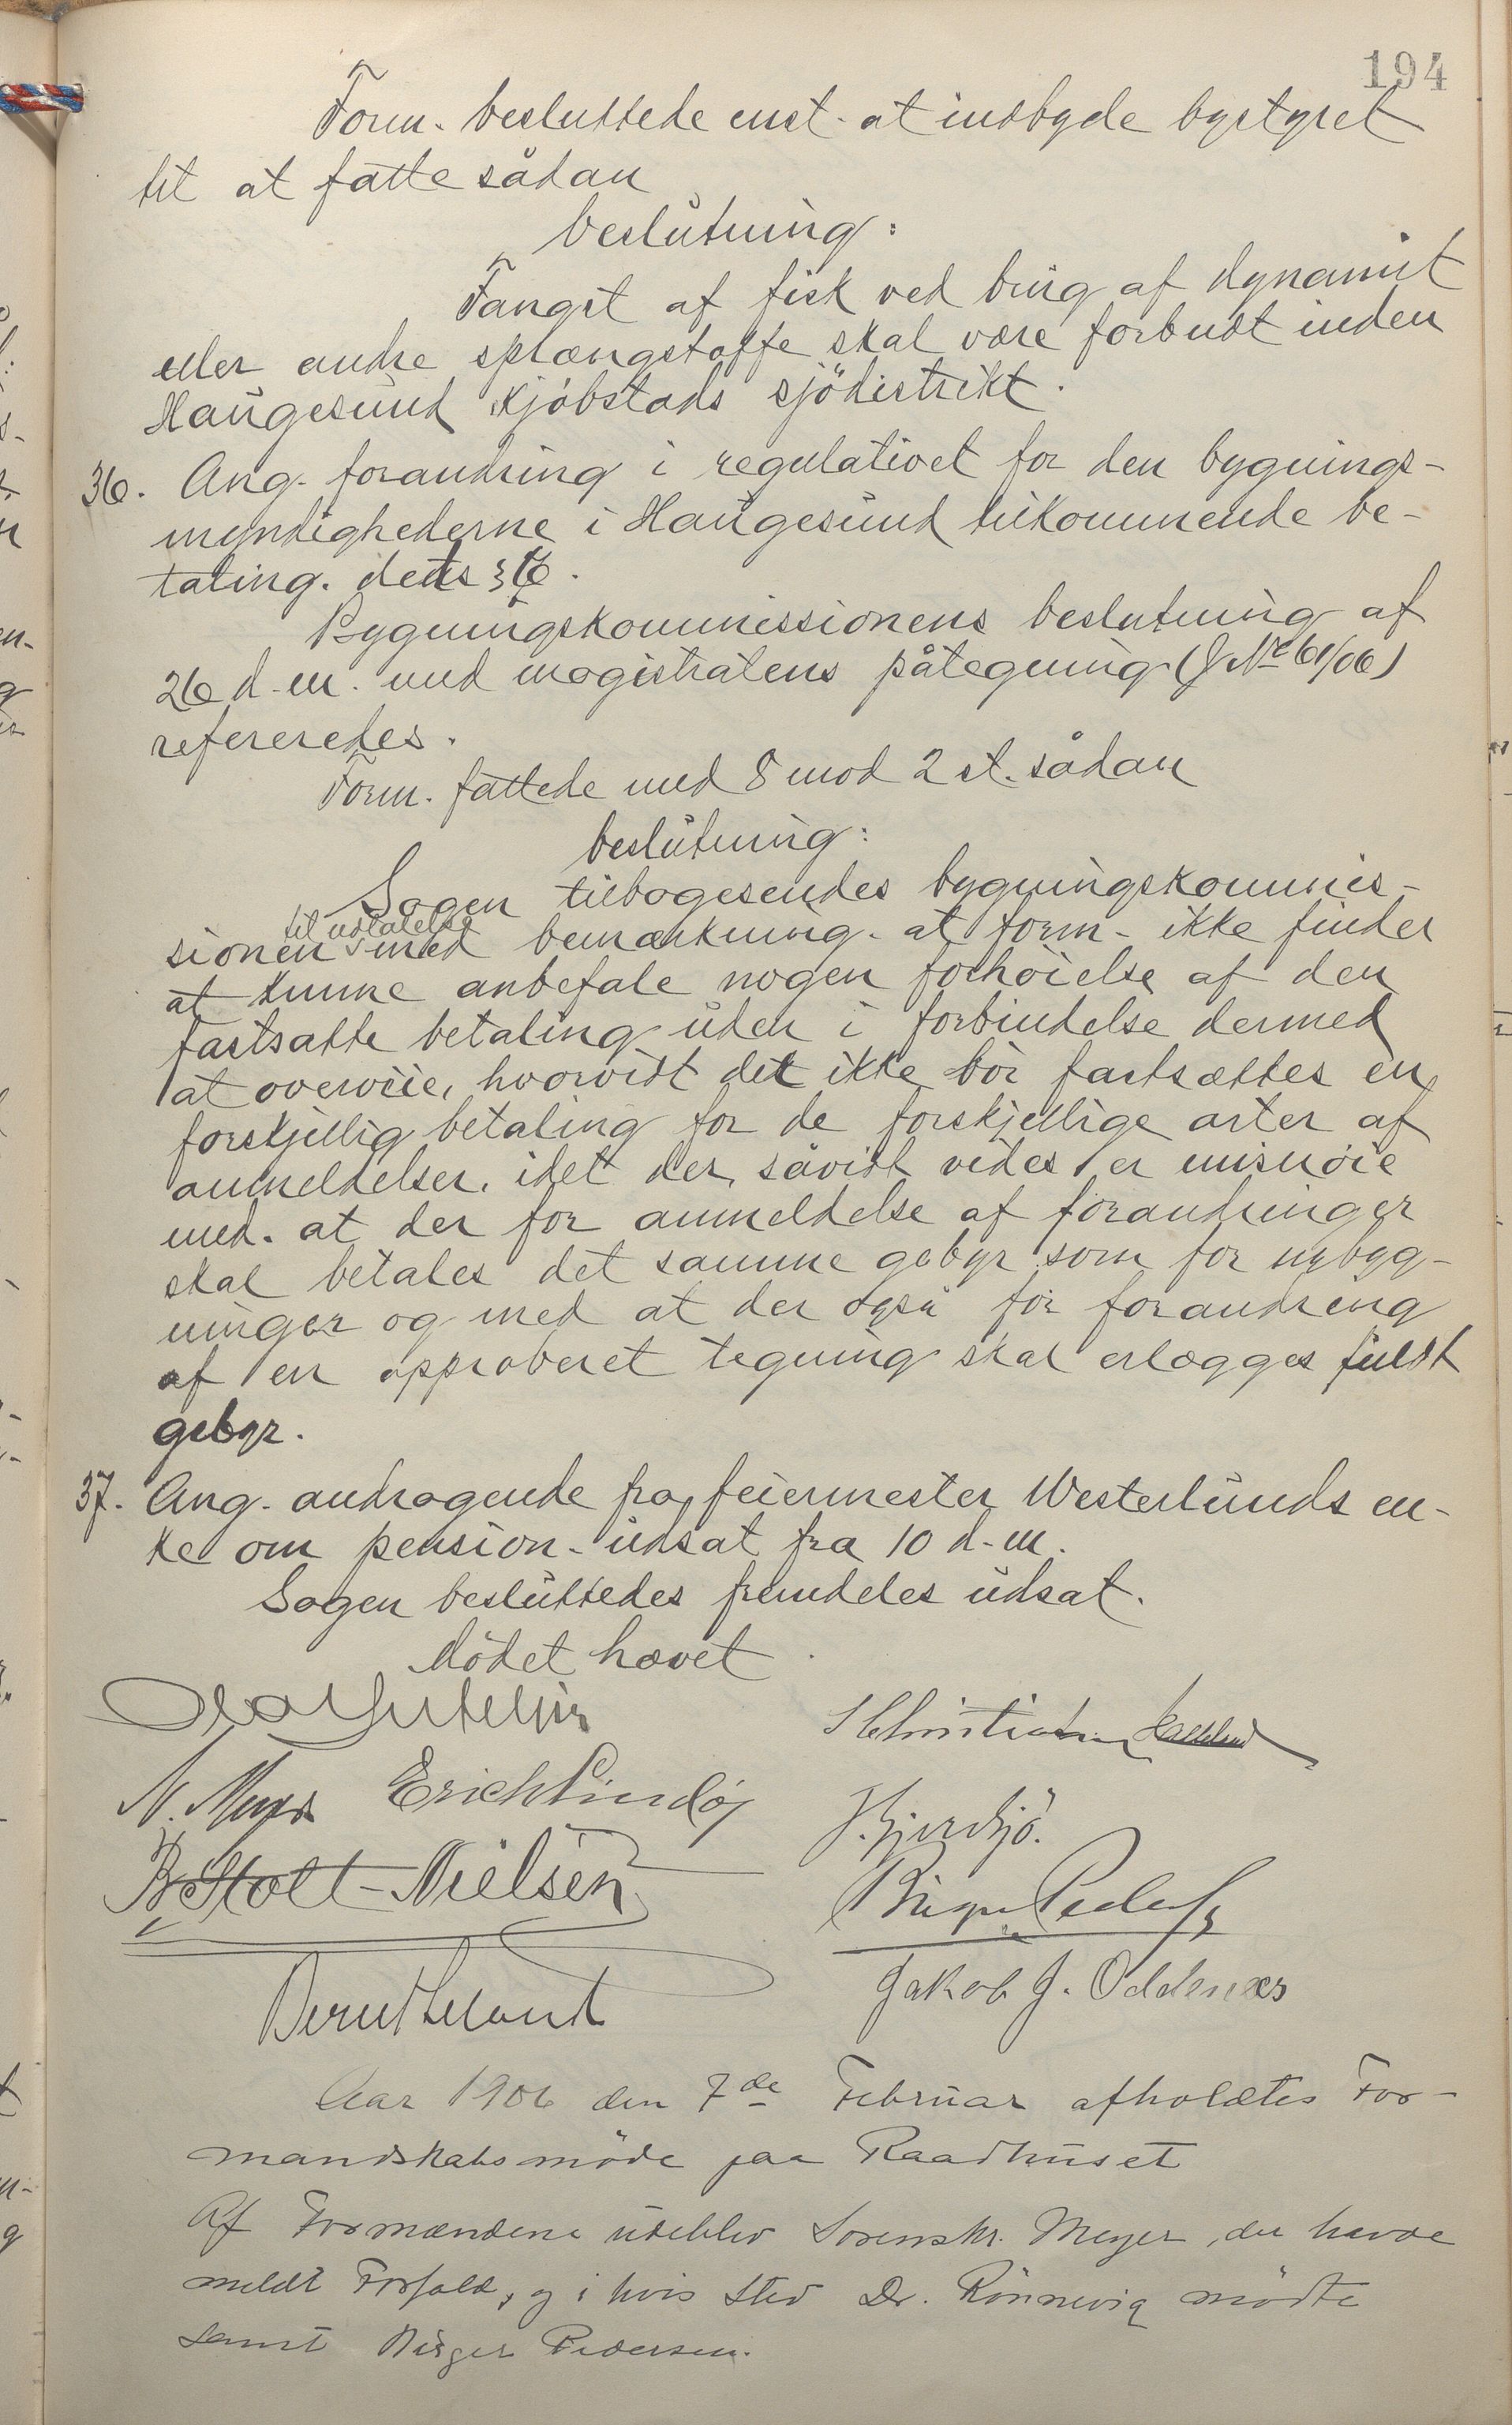 194
Form. besluttede enst. at indbyde bystyret
til at fatte sådan
beslutning:
Fangst af fisk ved brug af dynamit
eller andre sprængstoffe skal være forbudt inden
Haugesund kjöbstads sjödistrikt.
36. Ang. forandring i regulativet for den bygnings-
myndighederne i Haugesund tilkommende be-
taling. dets § 6.
Bygningskommissionens beslutning af
26 d.m. med magistratens påtegning (J No 61/06)
refereredes.
Form. fattede med 8 mod 2 st. sådan
beslutning:
Sagen tilbagesendes bygningskommis-
til udtalelse
sionen med bemærkning. at form. ikke finder
at kunne anbefale nogen forhöielse af den
fastsatte betaling uden i forbindelse dermed
at overveie, hvorvidt det ikke bör fastsættes en
forskjellig betaling for de forskjellige arter af
anmeldelser, idet der, såvidt vides, er misnöie
med. at der for anmeldelse af forandringer
skal betales det samme gebyr som for nybyg-
ninger og med at der også for forandring
af en approberet tegning skal erlægges fuldt
gebyr.
37. Ang. andragende fra feiermester Westerlunds en-
ke om pension. udsat fra 10 d.m.
Sagen besluttedes fremdeles udsat.
Mödet hævet
N. Meyer Erich Lindöy
B Stolt-Nielsen
Birger Peders
Bernt Leland
Jakob J. Oddenæs
Aar 1906 den 7de Februar afholdtes For-
mandskabsmöde paa Raadhuset
Af Formændene udeblev Sorenskr. Meyer, der havde
meldt Forfald, og i hvis Sted Dr. Rönnevig mödte
samt Birger Pedersen.